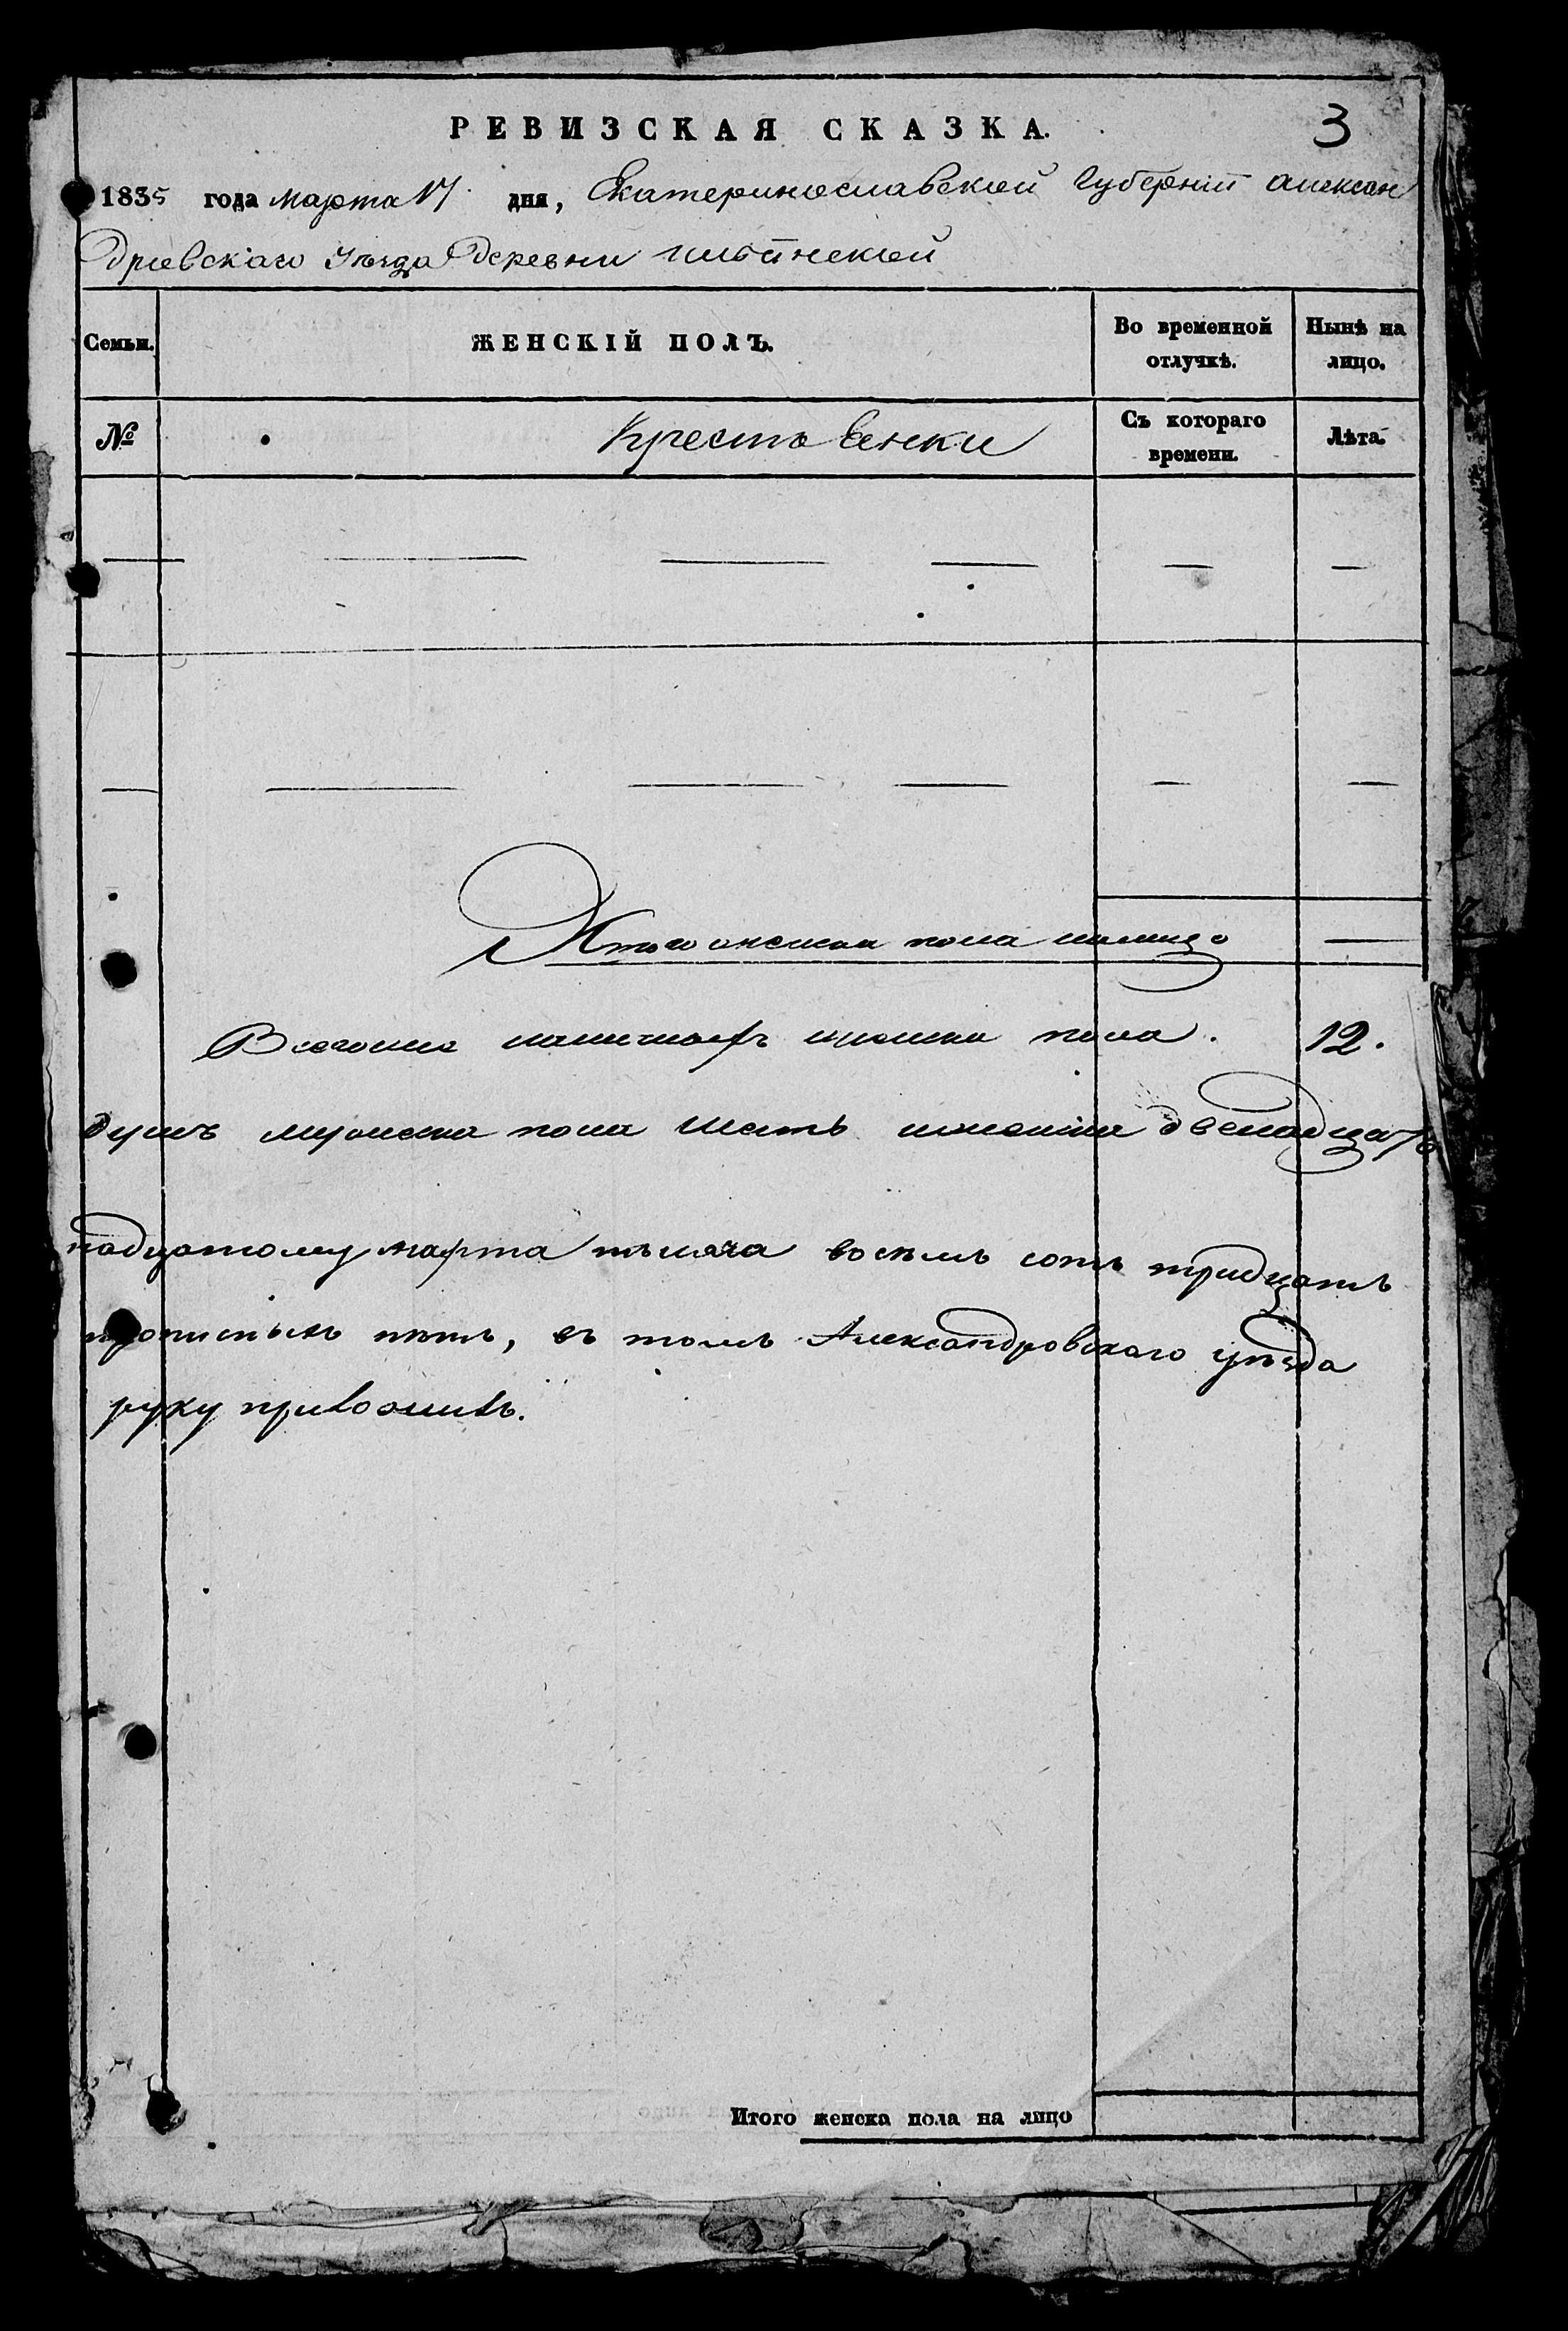 РЕВИЗСКАЯ СКАЗКА.
3
1835 года марта 17. дня, Екатеринославской Губерніи Алексан
дровскаго Уѣзда Деревни
Семьи.
ЖЕНСКІЙ ПОЛЪ.
Во временной отлучкѣ.
Нынѣ на лицо.
№
Крестьянки
Съ котораго времени.
Лѣта.
Итого женска пола налицо —
Всего наличныхъ женска пола. 12.
душъ мужеска пола шесть двенадцать
надцатому марта тысяча восемъ сотъ тридцать
пять, въ томъ Александровского уѣзда
руку приложилъ.
Итого женска пола на лицо